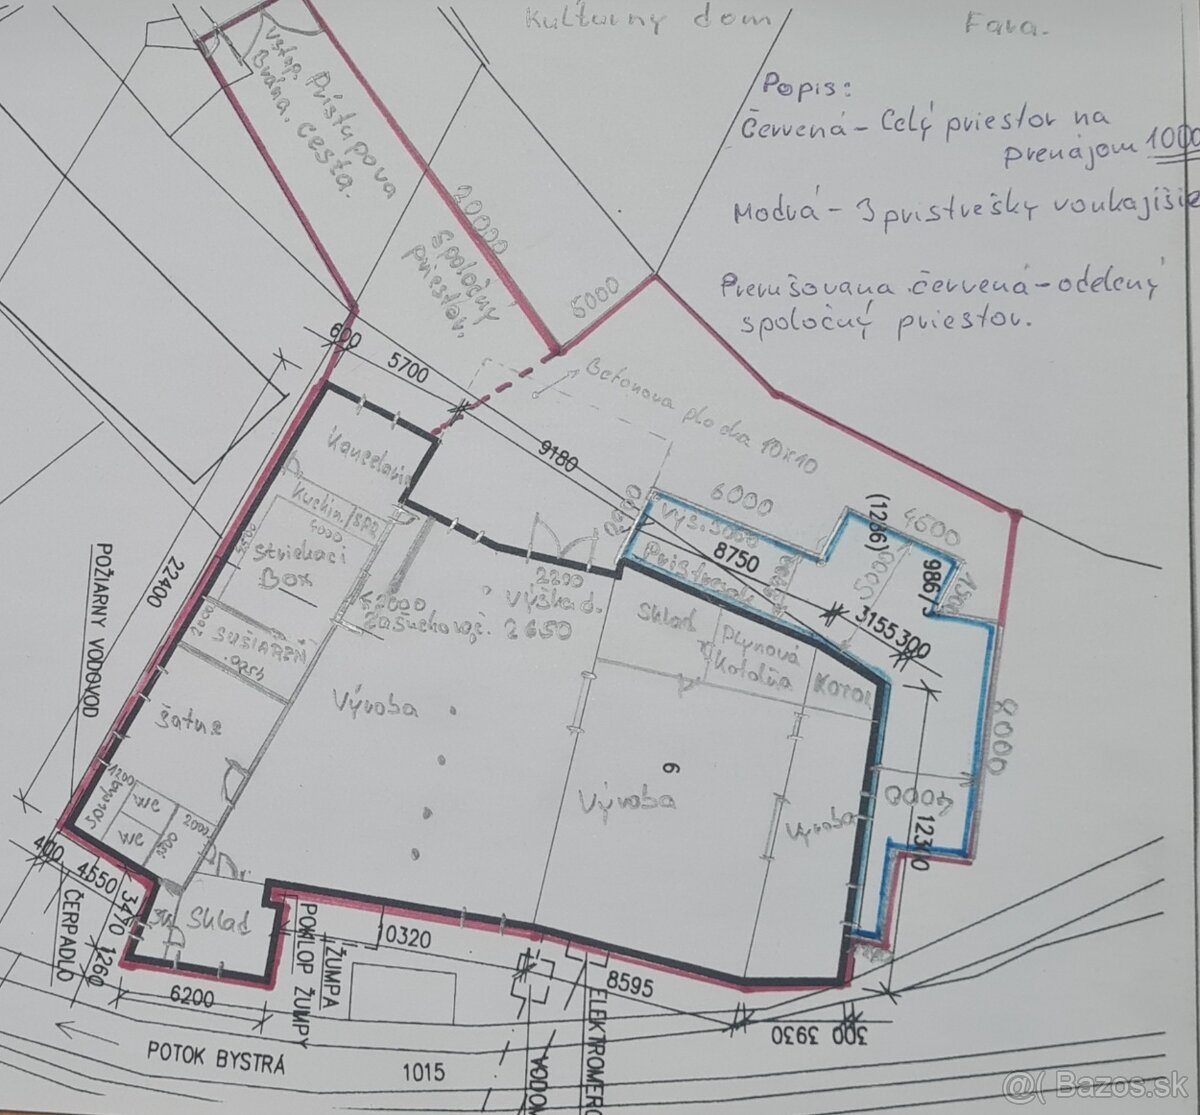 Kultúrny dom
Fara.
Popis:
Červená - Celý priestor na
prenájom 1000
Modrá - 3 prístrešky
Prerušovana červená - odelený
spoločný priestor.
vstup. Prístupova
Brána. cesta.
20000
spoločný
priestor.
5000
600
5700
Betonova plocha 10x10
9180
6000
4500
(1286)
5000
986
1500
výš. 3000
8750
Prístrešok
3155
300
Kancelaria
Kuchin./SPR
4000
Striekací
Box
2000
SUŠIAREŇ
Šatne
1200
WC
WC
2000
Sprcha
2200
výška d.
2650
Sklad
Plynová
Kotolňa
KOTOL
Výroba
Výroba
6
Výroba
8000
4000
12300
POŽIARNY VODOVOD
22400
400
4550
3470
1260
ČERPADLO
Sklad
6200
POKLOP ŽUMPY
ŽUMPA
10320
8595
3930
300
ELEKTROMERO
VODOM
POTOK BYSTRÁ
1015
@( Bazos.sk